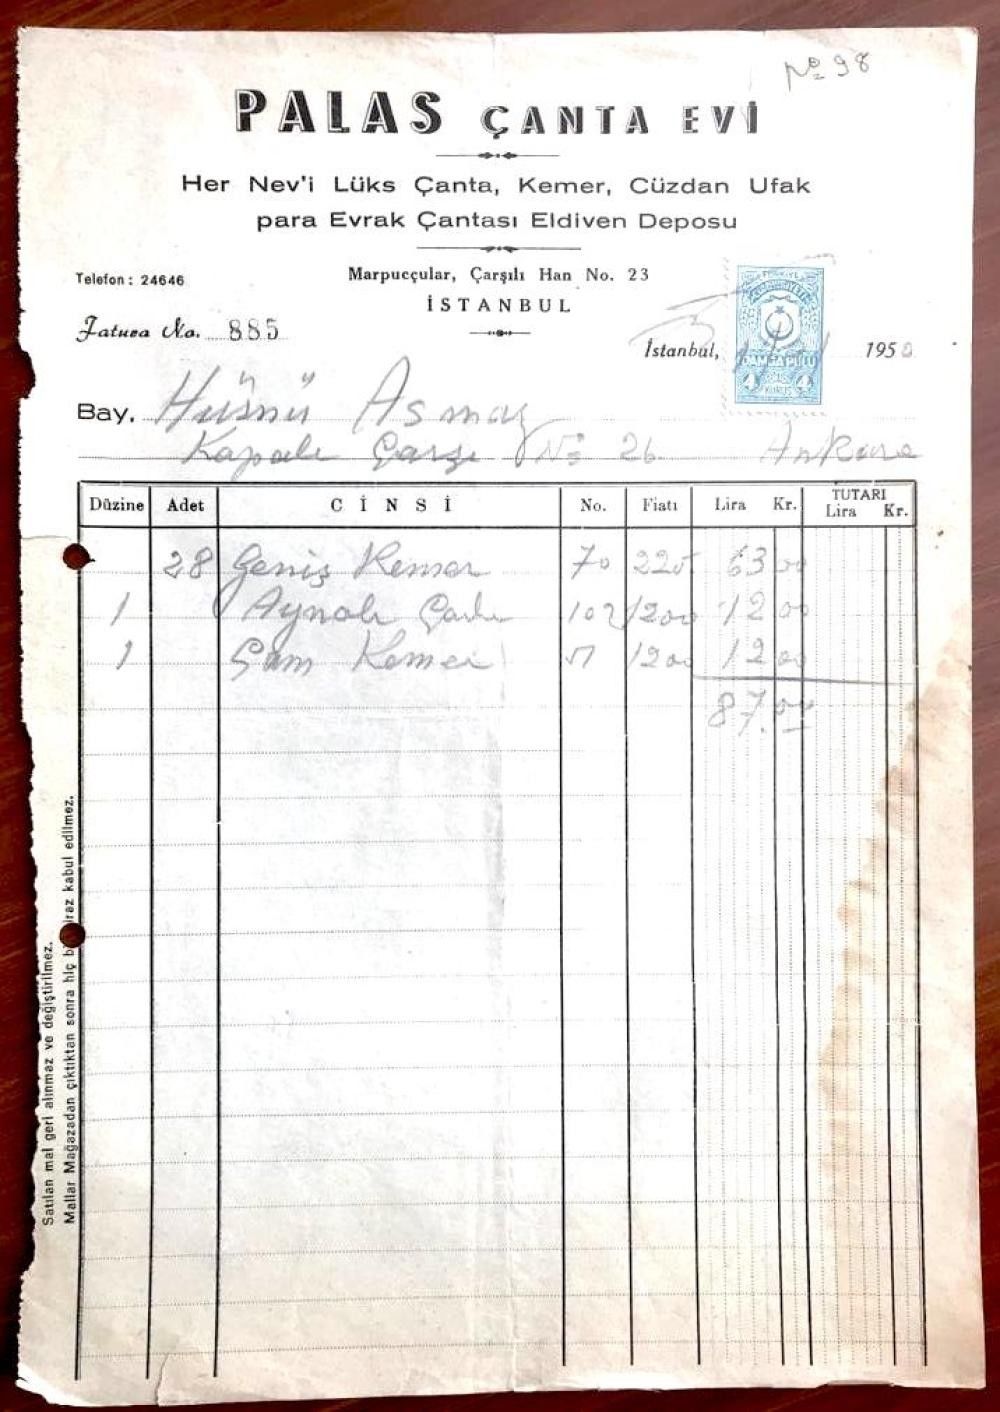 No 98
PALAS ÇANTA EVİ
Her Nev'i Lüks Çanta, Kemer, Cüzdan Ufak
para Evrak Çantası Eldiven Deposu
Telefon: 24646
Marpuççular, Çarşılı Han No. 23
İSTANBUL
Fatura No. 885
İstanbul, 195
TÜRKİYE CUMHURİYETİ
DAMGA PULU
4 KURUŞ 4
Bay. Hüsnü Asmaz
Kapalı Çarşı No 26 Ankara
Düzine Adet CİNSİ No. Fiatı Lira Kr. TUTARI Lira Kr.
28 Geniş Kemer 70 225 63 00
1 Aynalı 102 1200 12 00
1 Kemer 1200 12 00
87.00
Satılan mal geri alınmaz ve değiştirilmez.
Mallar Mağazadan çıktıktan sonra hiç bi iraz kabul edilmez.